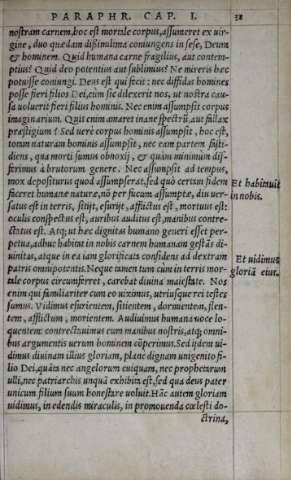 PARAPHR. CAP. I. 38
nostram carnem, hoc est mortale corpus, assumeret ex uir-
gine, duo quædam dißimilima coniungens in sese, Deum
& hominem. Quid humana carne fragilius, aut contem-
ptius? Quid deo potentius aut sublimius? Ne mireris hæc
potuisse coniungi. Deus est qui fecit: nec diffidas homines
posse fieri filios Dei, cùm sic dilexerit nos, ut nostra cau-
sa uoluerit fieri filius hominis. Nec enim assumpsit corpus
imaginarium. Quis enim amaret inane spectrũ, aut fallax
præstigium? Sed uerè corpus hominis assumpsit, hoc est,
totam naturam hominis assumpsit, nec eam partem fasti-
diens, qua morti sumus obnoxij, & quàm minimùm dif-
ferimus à brutorum genere. Nec assumpsit ad tempus,
mox depositurus quod assumpserat, sed quò certam fidem
faceret humanæ naturæ, nõ per fucum assumptæ, diu uer-
satus est in terris, sitijt, esurijt, afflictus est, mortuus est:
oculis conspectus est, auribus auditus est, manibus contre-
ctatus est. Atq; ut hæc dignitas humano generi esset per-
petua, adhuc habitat in nobis carnem humanam gestãs di-
uinitas, atque in ea iam glorificata considens ad dextram
patris omnipotentis. Neque tamen tum cùm in terris mor-
tale corpus circumferret, carebat diuina maiestate. Nos
enim qui familiariter cum eo uiximus, utriusque rei testes
sumus. Vidimus esurientem, sitientem, dormientem, flen-
tem, afflictum, morientem. Audiuimus humana uoce lo-
quentem: contrectauimus eum manibus nostris, atq; omni-
bus argumentis uerum hominem cõperimus. Sed ijdem ui-
dimus diuinam illius gloriam, planè dignam unigenito fi-
lio Dei, quàta nec angelorum cuiquam, nec prophetarum
ulli, nec patriarchis unquã exhibita est, sed qua deus pater
unicum filium suum honestare uoluit. Hãc autem gloriam
uidimus, in edendis miraculis, in promouenda cœlesti do-
ctrina,
Et habitauit
in nobis.
Et uidimus
gloriã eius.